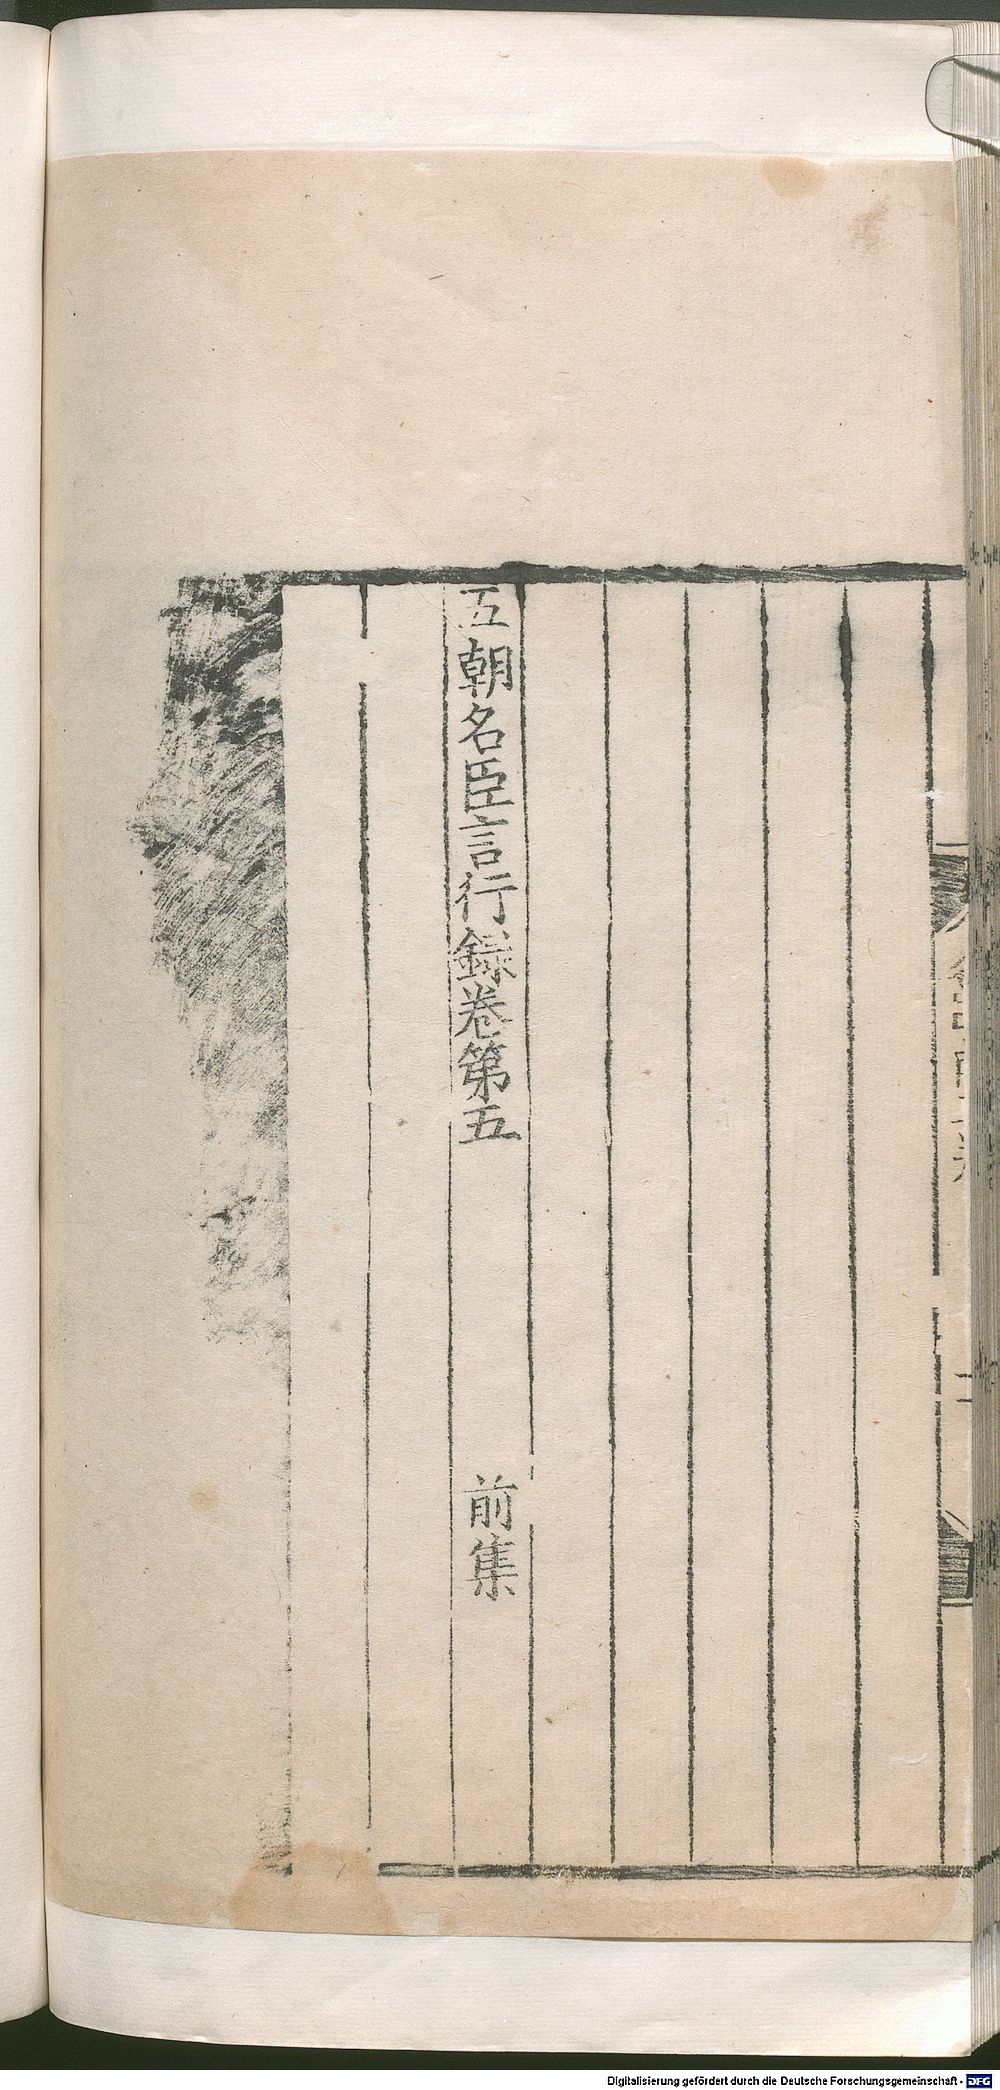 五朝名臣言行録卷第五 前集
Digitalisierung gefördert durch die Deutsche Forschungsgemeinschaft - DFG